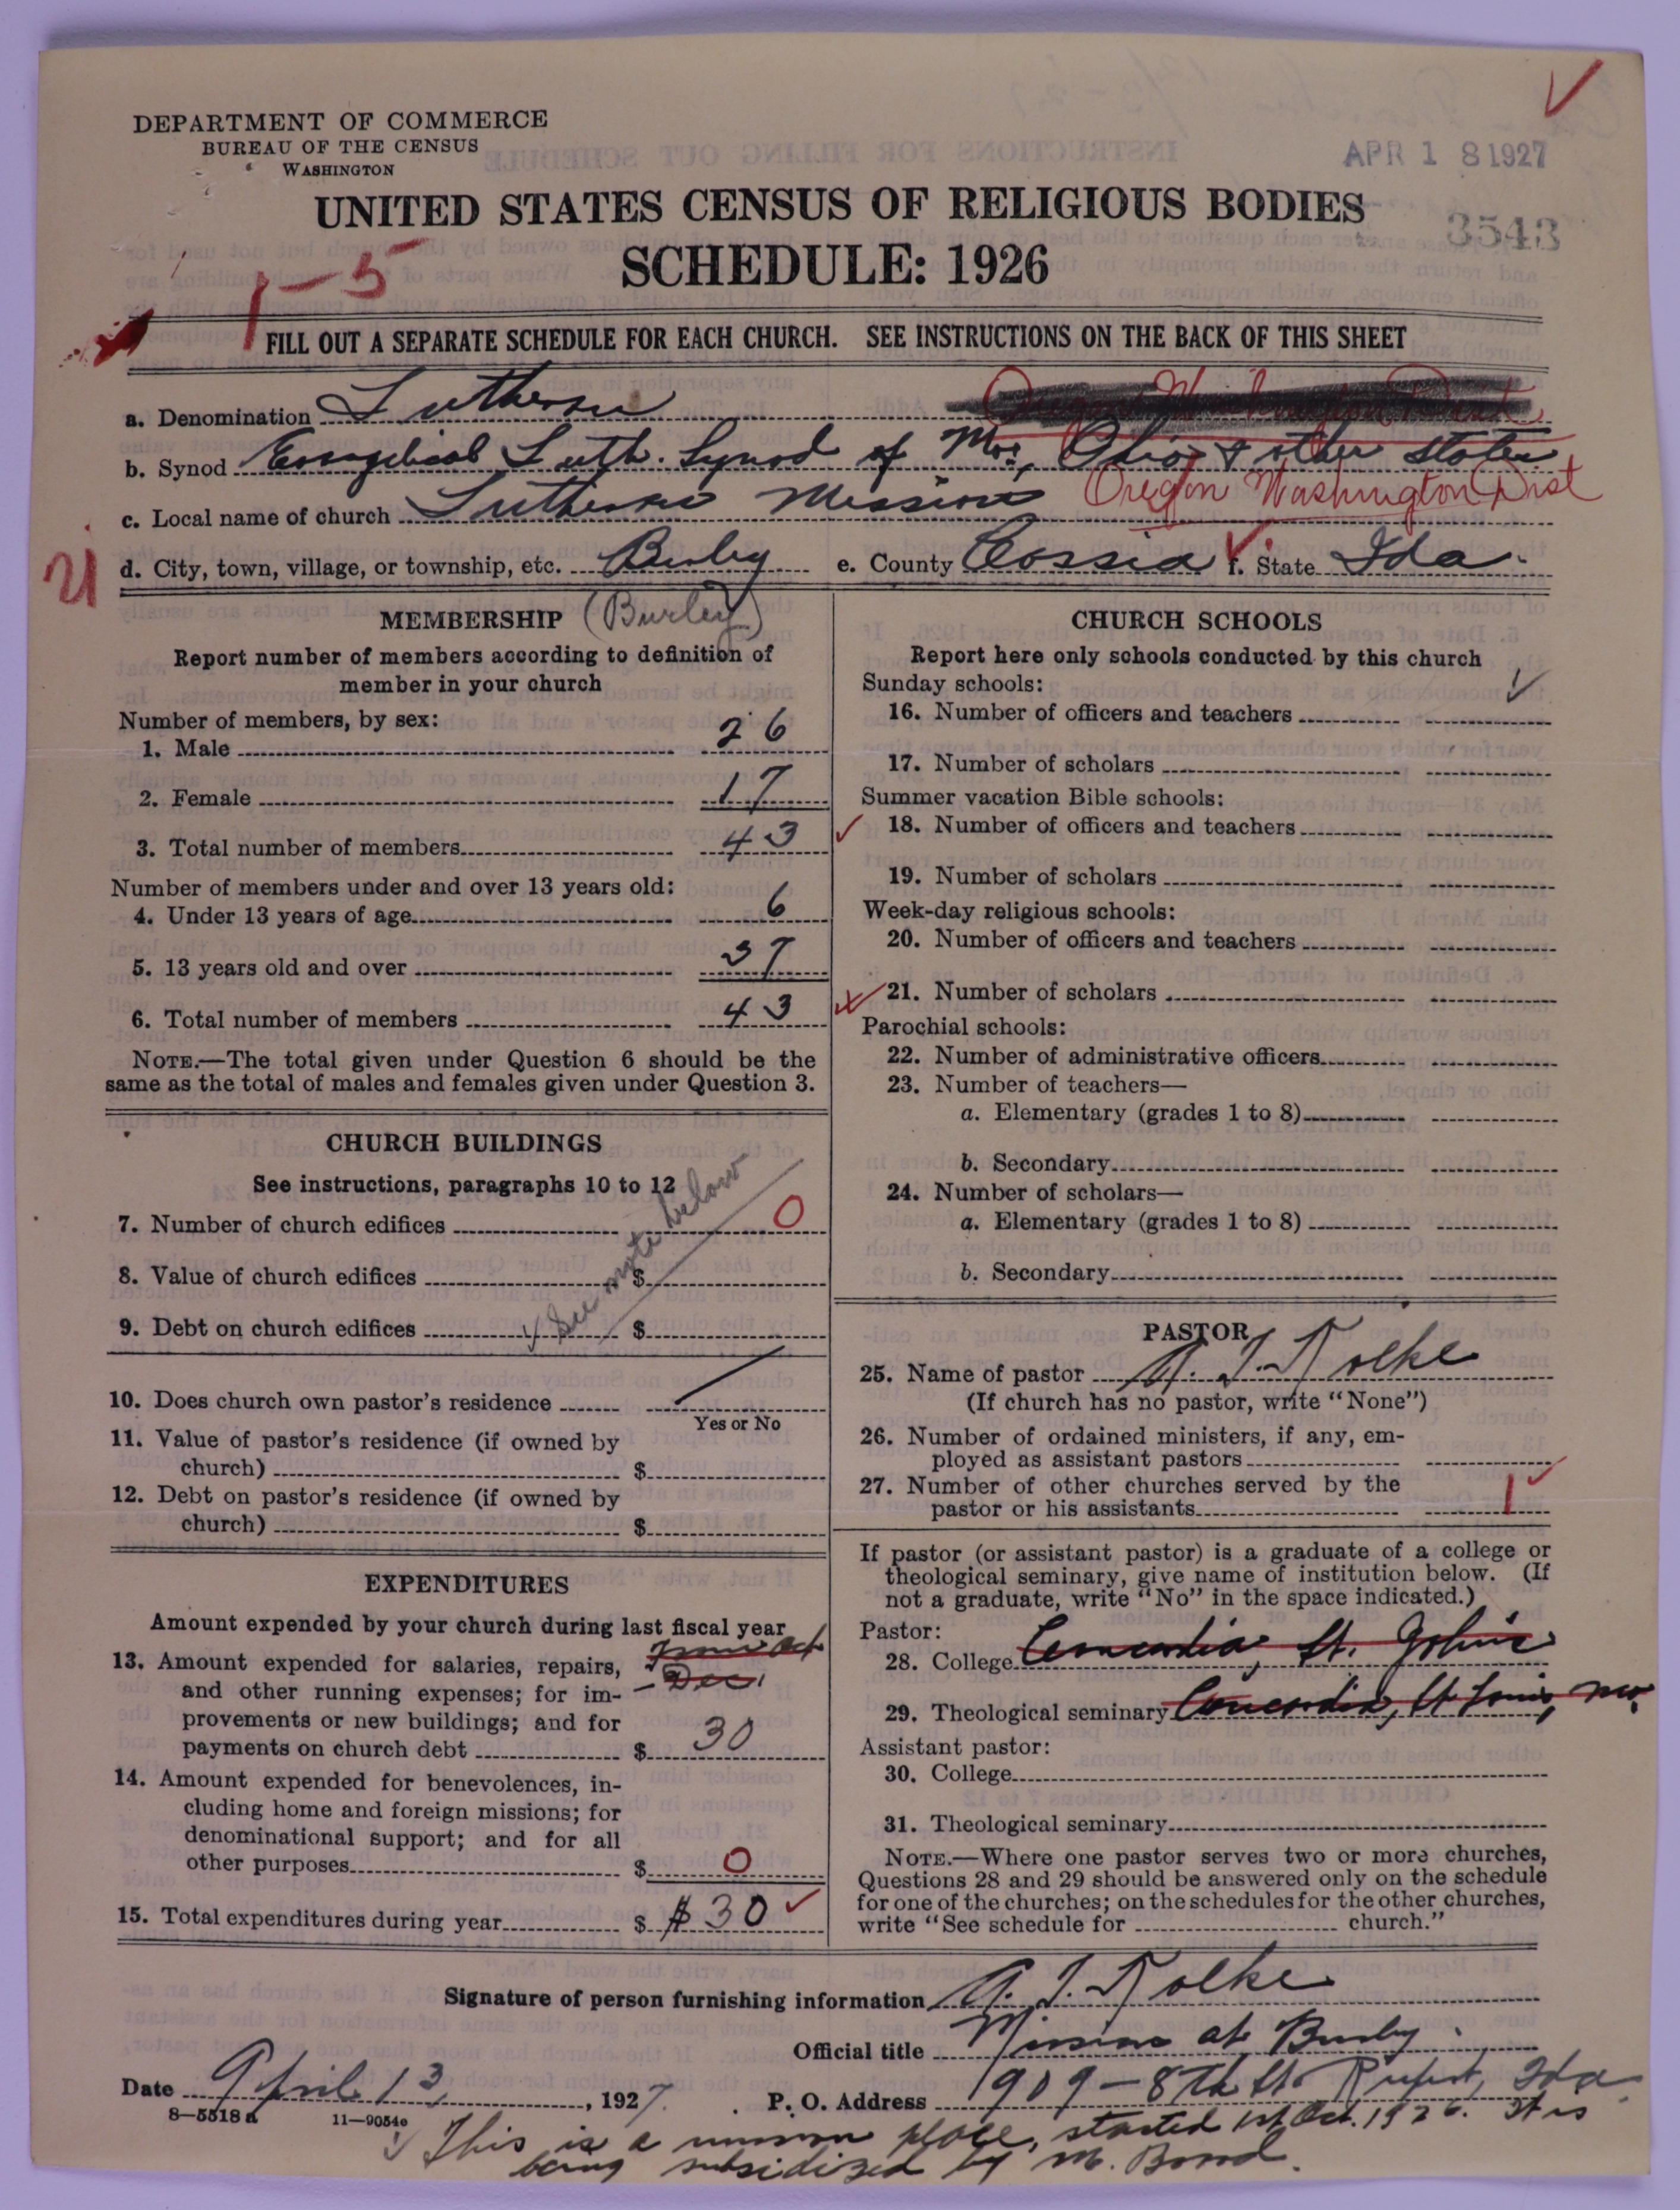 DEPARTMENT OF COMMERCE
BUREAU OF THE CENSUS
WASHINGTON
APR 18 1927
UNITED STATES CENSUS OF RELIGIOUS BODIES
3543
SCHEDULE: 1926
1-5
FILL OUT A SEPARATE SCHEDULE FOR EACH CHURCH. SEE INSTRUCTIONS ON THE BACK OF THIS SHEET
a. Denomination Lutheran
b. Synod Evangelical Luth. Synod of Mo., Ohio & other States
c. Local name of church Lutheran Mission Oregon Washington Dist
21
d. City, town, village, or township, etc. Burley e. County Cassia f. State Ida.
MEMBERSHIP (Burley)
Report number of members according to definition of
member in your church
Number of members, by sex:
1. Male 26
2. Female 17
3. Total number of members 43
Number of members under and over 13 years old:
4. Under 13 years of age 6
5. 13 years old and over 37
6. Total number of members 43
NOTE.—The total given under Question 6 should be the
same as the total of males and females given under Question 3.
CHURCH BUILDINGS
See instructions, paragraphs 10 to 12
7. Number of church edifices 0
8. Value of church edifices $
9. Debt on church edifices $
See note below
10. Does church own pastor's residence
Yes or No
11. Value of pastor's residence (if owned by
church) $
12. Debt on pastor's residence (if owned by
church) $
EXPENDITURES
Amount expended by your church during last fiscal year
from Oct
- Dec.
13. Amount expended for salaries, repairs,
and other running expenses; for im-
provements or new buildings; and for
payments on church debt $ 30
14. Amount expended for benevolences, in-
cluding home and foreign missions; for
denominational support; and for all
other purposes $ 0
15. Total expenditures during year $ $30
CHURCH SCHOOLS
Report here only schools conducted by this church
Sunday schools:
16. Number of officers and teachers
17. Number of scholars
Summer vacation Bible schools:
18. Number of officers and teachers
19. Number of scholars
Week-day religious schools:
20. Number of officers and teachers
21. Number of scholars
Parochial schools:
22. Number of administrative officers
23. Number of teachers—
a. Elementary (grades 1 to 8)
b. Secondary
24. Number of scholars—
a. Elementary (grades 1 to 8)
b. Secondary
PASTOR
25. Name of pastor
(If church has no pastor, write "None")
26. Number of ordained ministers, if any, em-
ployed as assistant pastors
27. Number of other churches served by the
pastor or his assistants 1
If pastor (or assistant pastor) is a graduate of a college or
theological seminary, give name of institution below. (If
not a graduate, write "No" in the space indicated.)
Pastor:
28. College Concordia, St. Johns
29. Theological seminary Concordia, St Louis, Mo.
Assistant pastor:
30. College
31. Theological seminary
NOTE.—Where one pastor serves two or more churches,
Questions 28 and 29 should be answered only on the schedule
for one of the churches; on the schedules for the other churches,
write "See schedule for church."
Signature of person furnishing information
Official title at Burley.
Date April 13, 1927. P. O. Address 1909-8th St. Rupert, Ida.
8-5518 a 11-9054c
This is a mission place, started 1st Oct. 1926. It is
being subsidized by M. Board.